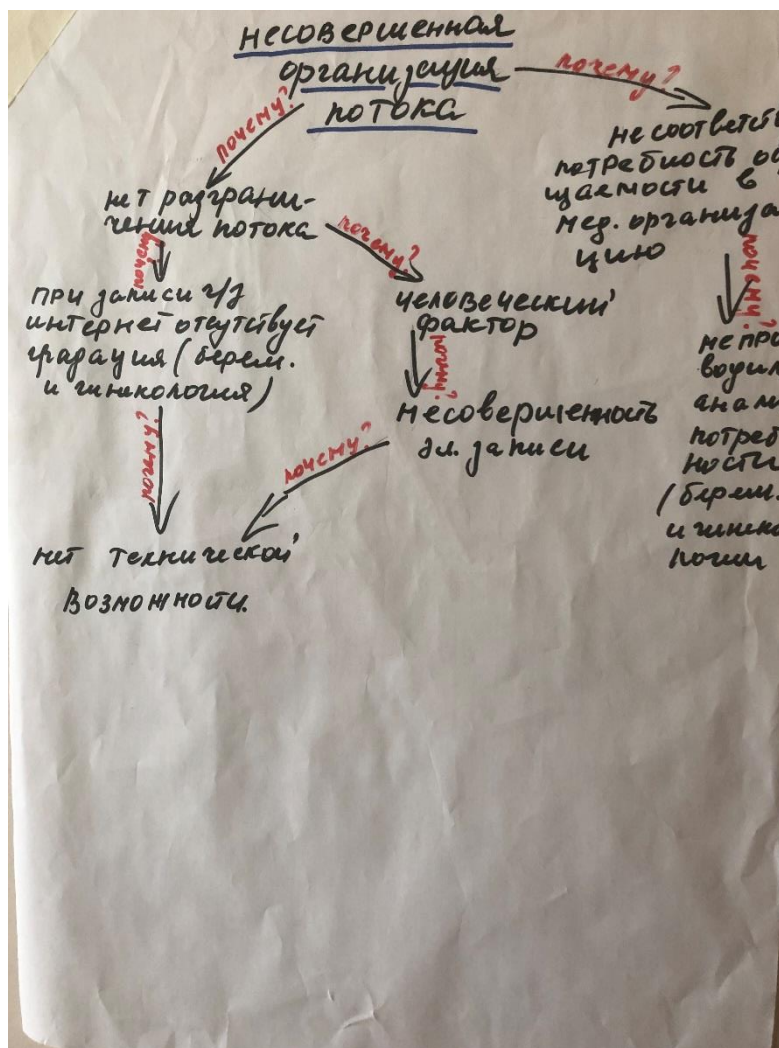 несовершенная
организация
потока
почему?
почему?
нет разграни-
чения потока
почему?
почему?
при записи ч/з
интернет отсутствует
градация (берем.
и гинекология)
почему?
нет технической
возможности.
человеческий
фактор
почему?
несовершенность
эл. записи
почему?
не соответст
потребность
щаемости в
мед. организа
цию
почему?
не при
водил
анали
потреб
ности
(берем.
и гинеко
логии